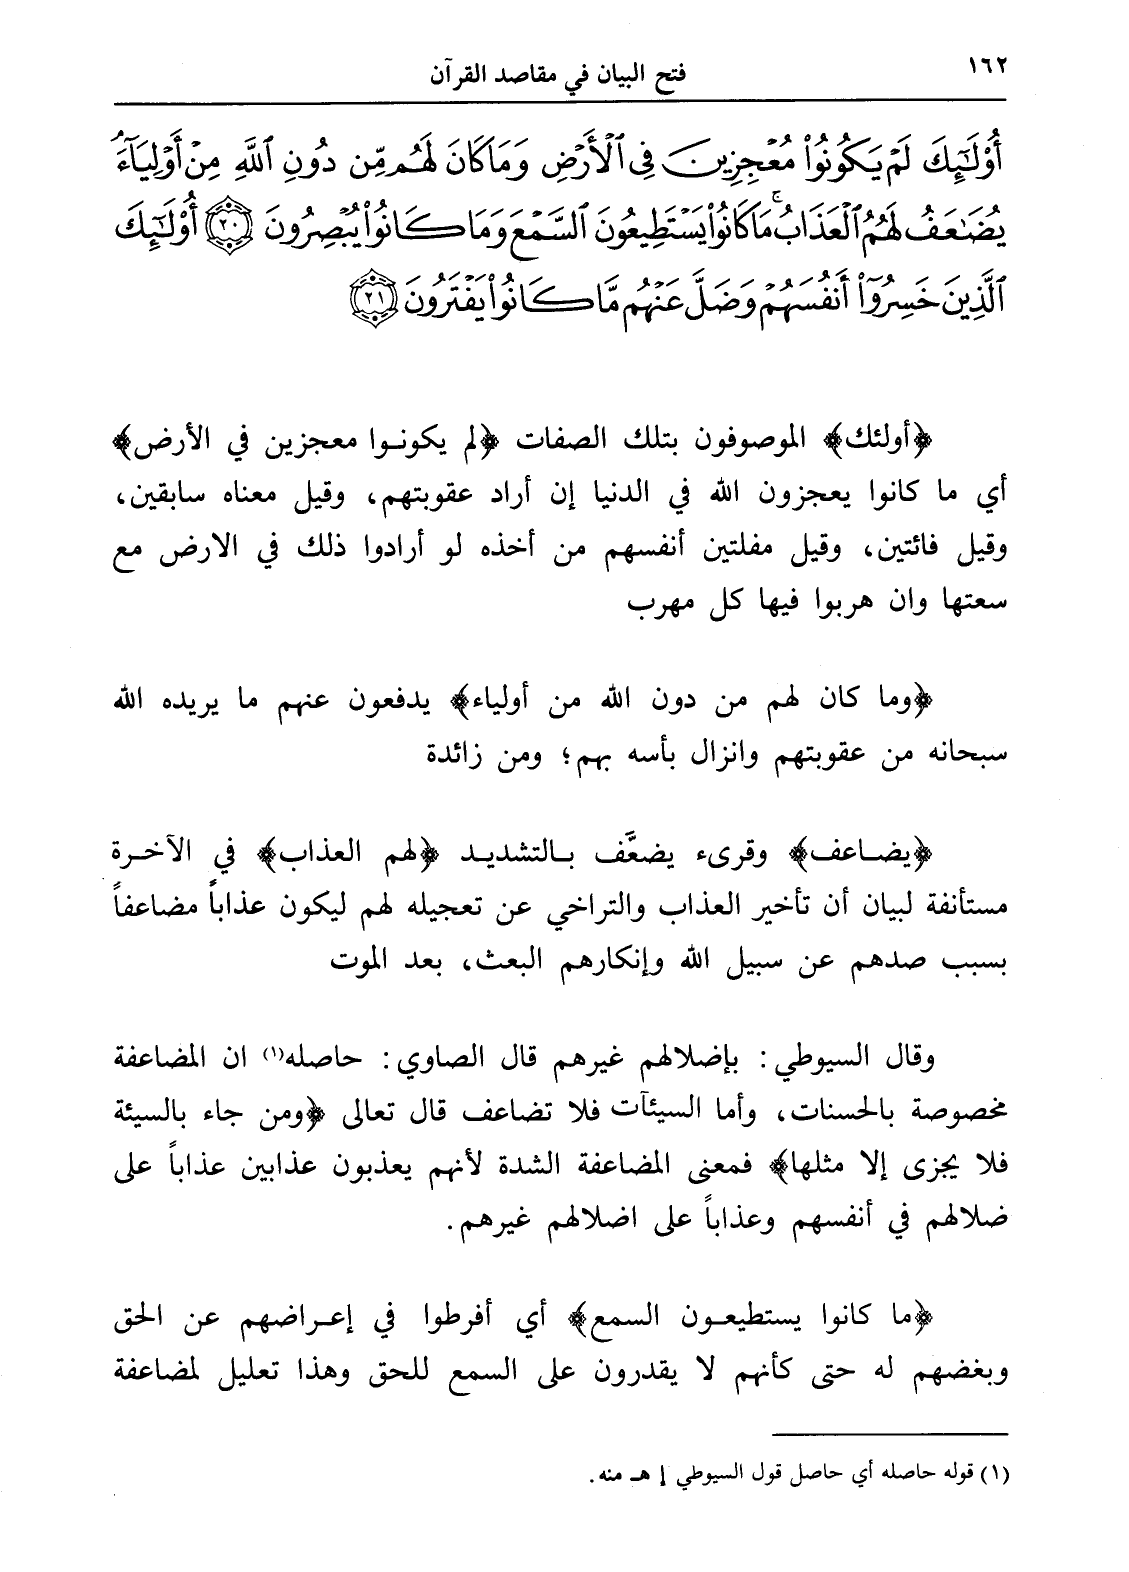 ١٦٢
فتح البيان في مقاصد القرآن
أُوْلَٰٓئِكَ لَمْ يَكُونُوا۟ مُعْجِزِينَ فِى ٱلْأَرْضِ وَمَا كَانَ لَهُم مِّن دُونِ ٱللَّهِ مِنْ أَوْلِيَآءَۘ
يُضَٰعَفُ لَهُمُ ٱلْعَذَابُۚ مَا كَانُوا۟ يَسْتَطِيعُونَ ٱلسَّمْعَ وَمَا كَانُوا۟ يُبْصِرُونَ ﴿٢٠﴾ أُو۟لَٰٓئِكَ
ٱلَّذِينَ خَسِرُوٓا۟ أَنفُسَهُمْ وَضَلَّ عَنْهُم مَّا كَانُوا۟ يَفْتَرُونَ ﴿٢١﴾
﴿أولئك﴾ الموصوفون بتلك الصفات ﴿لم يكونوا معجزين في الأرض﴾
أي ما كانوا يعجزون الله في الدنيا إن أراد عقوبتهم، وقيل معناه سابقين،
وقيل فائتين، وقيل مفلتين أنفسهم من أخذه لو أرادوا ذلك في الارض مع
سعتها وان هربوا فيها كل مهرب
﴿وما كان لهم من دون الله من أولياء﴾ يدفعون عنهم ما يريده الله
سبحانه من عقوبتهم وانزال بأسه بهم؛ ومن زائدة
﴿يضاعف﴾ وقرىء يضعَّف بالتشديد ﴿لهم العذاب﴾ في الآخرة
مستأنفة لبيان أن تأخير العذاب والتراخي عن تعجيله لهم ليكون عذاباً مضاعفاً
بسبب صدهم عن سبيل الله وإنكارهم البعث، بعد الموت
وقال السيوطي: بإضلالهم غيرهم قال الصاوي: حاصله(١) ان المضاعفة
مخصوصة بالحسنات، وأما السيئآت فلا تضاعف قال تعالى ﴿ومن جاء بالسيئة
فلا يجزى إلا مثلها﴾ فمعنى المضاعفة الشدة لأنهم يعذبون عذابين عذاباً على
ضلالهم في أنفسهم وعذاباً على اضلالهم غيرهم.
﴿ما كانوا يستطيعون السمع﴾ أي أفرطوا في إعراضهم عن الحق
وبغضهم له حتى كأنهم لا يقدرون على السمع للحق وهذا تعليل لمضاعفة
(١) قوله حاصله أي حاصل قول السيوطي إ هـ منه.